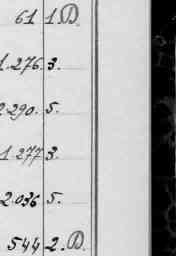 61 1. D.
1.276. 3.
2.290. 5.
1 277 3.
2.036 5.
544 2. D.